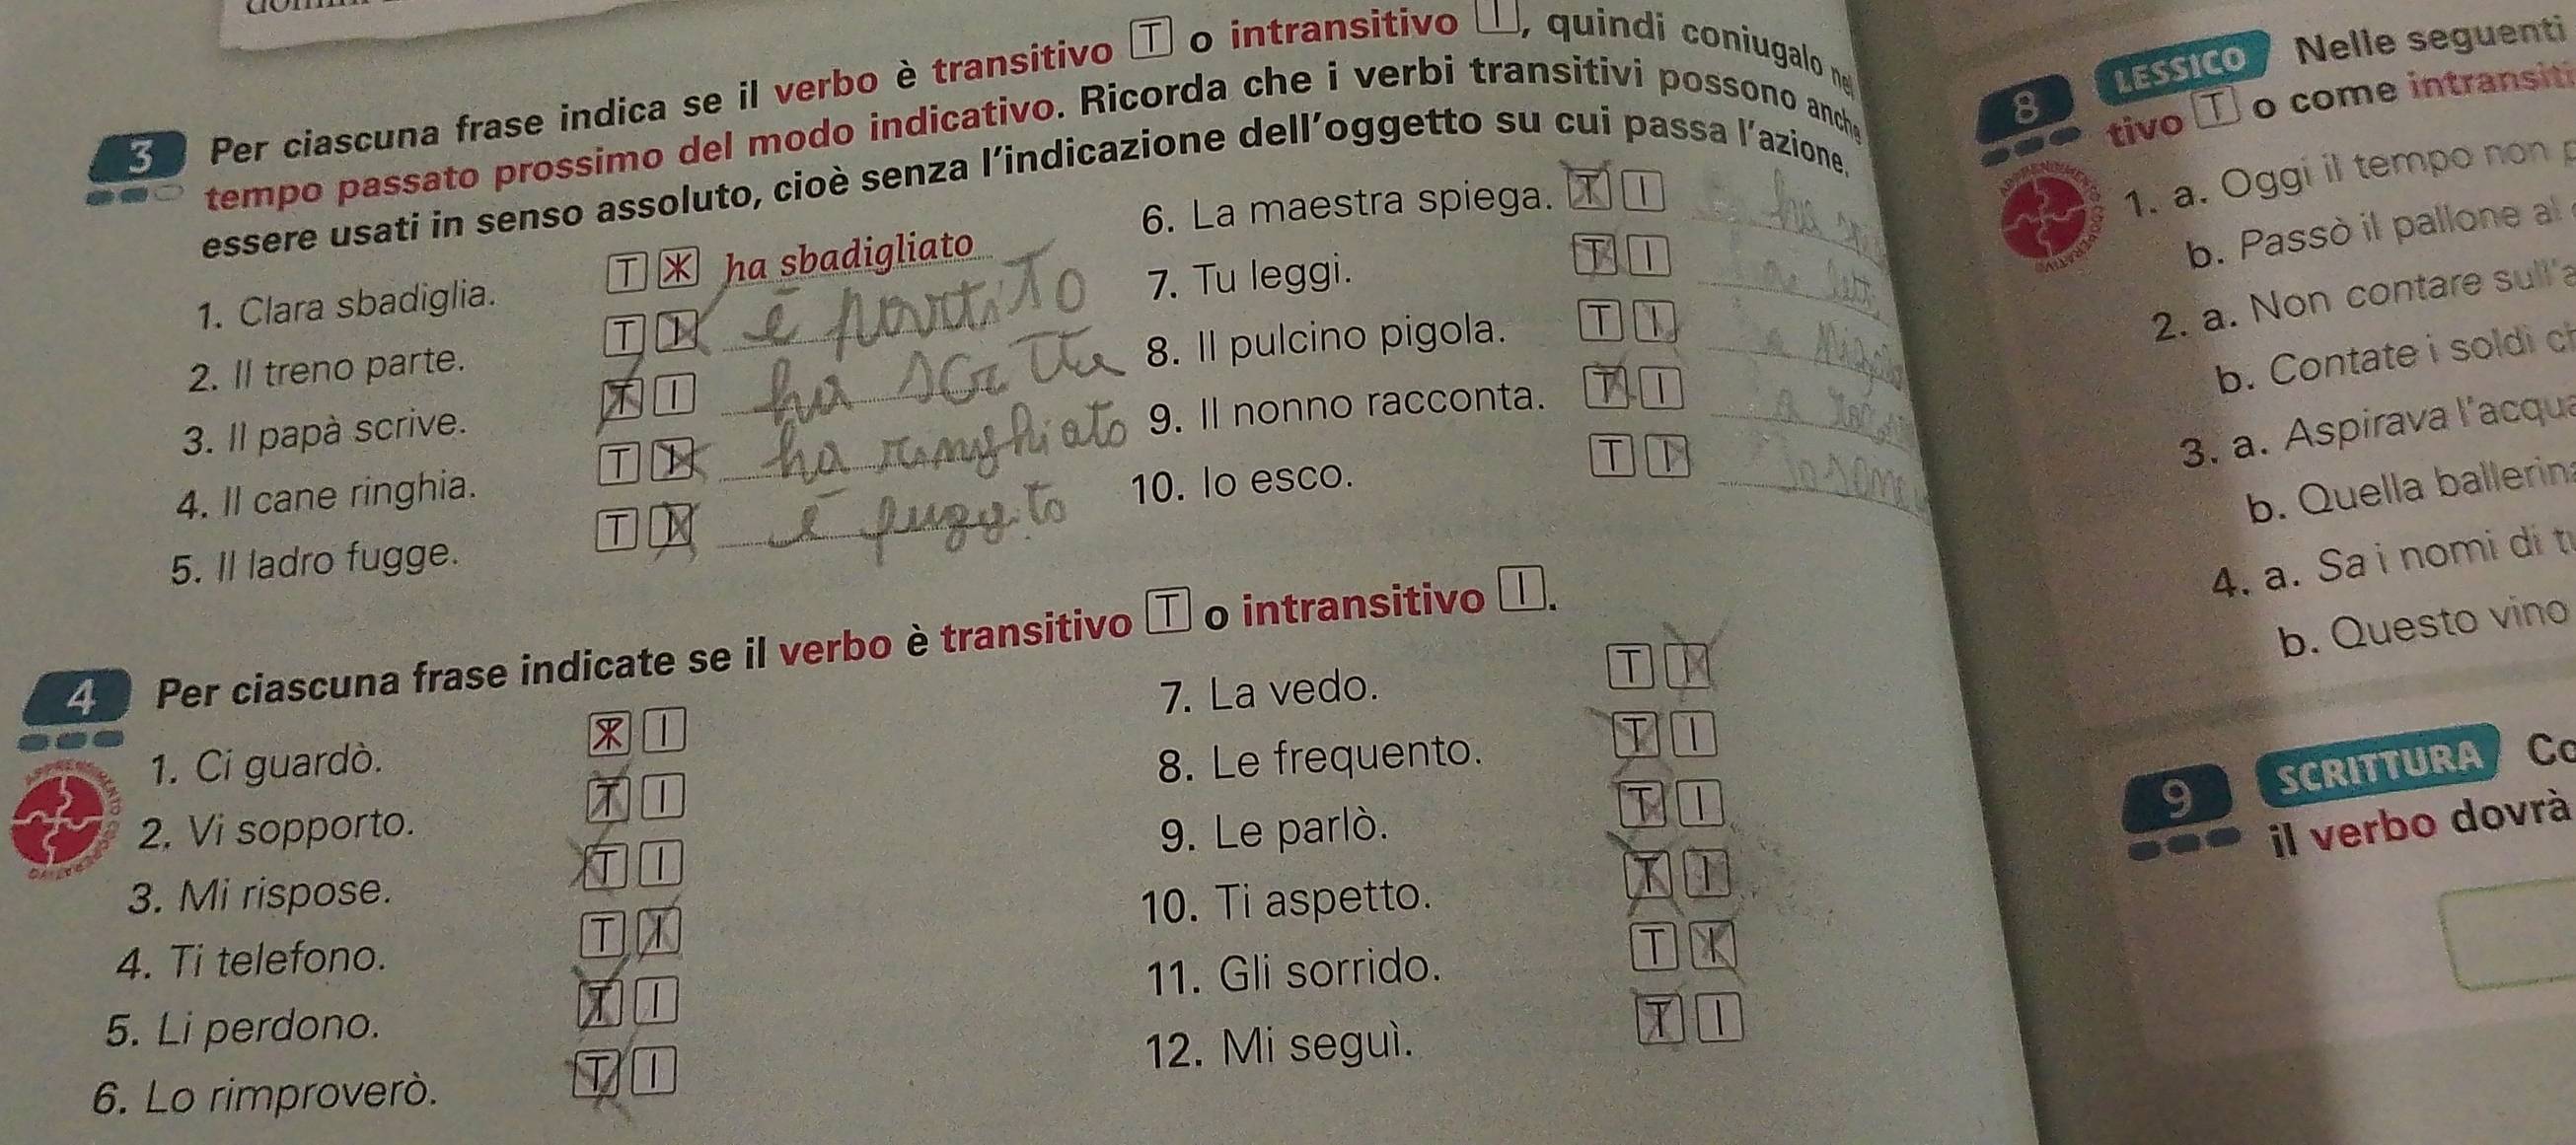 3 Per ciascuna frase indica se il verbo è transitivo T o intransitivo I, quindi coniugalo nel
tempo passato prossimo del modo indicativo. Ricorda che i verbi transitivi possono anche
essere usati in senso assoluto, cioè senza l'indicazione dell'oggetto su cui passa l'azione.
1. Clara sbadiglia. T I ha sbadigliato
2. Il treno parte. T I è partito
3. Il papà scrive. T I ha
4. Il cane ringhia. T I ha ringhiato
5. Il ladro fugge. T I è fuggito
6. La maestra spiega. T I ha
7. Tu leggi. T I
8. Il pulcino pigola. T I
9. Il nonno racconta. T I
10. Io esco. T I
4 Per ciascuna frase indicate se il verbo è transitivo T o intransitivo I.
APPRENDIMENTO COOPERATIVO
1. Ci guardò. T I
2. Vi sopporto. T I
3. Mi rispose. T I
4. Ti telefono. T I
5. Li perdono. T I
6. Lo rimproverò. T I
7. La vedo. T I
8. Le frequento. T I
9. Le parlò. T I
10. Ti aspetto. T I
11. Gli sorrido. T I
12. Mi seguì. T I
8 LESSICO Nelle seguenti
tivo T o come intransiti
APPRENDIMENTO COOPERATIVO
1. a. Oggi il tempo non p
b. Passò il pallone al
2. a. Non contare sull'a
b. Contate i soldi ch
3. a. Aspirava l'acqua
b. Quella ballerina
4. a. Sa i nomi di tu
b. Questo vino
9 SCRITTURA Co
il verbo dovrà